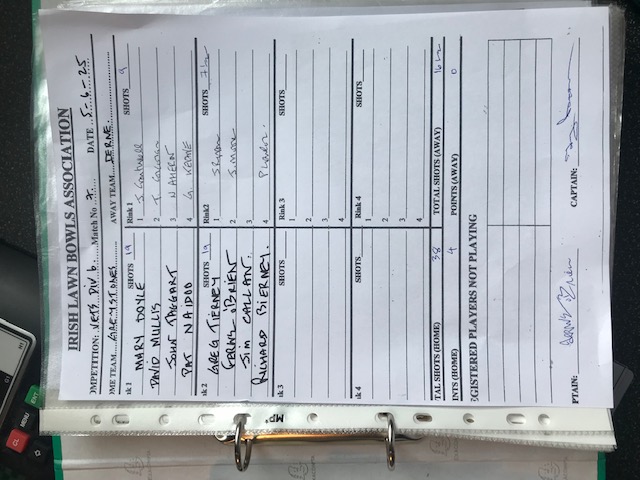 IRISH LAWN BOWLS ASSOCIATION
OMPETITION: VETS DIV 6 Match No DATE 5-6-25
ME TEAM GREYSTONES AWAY TEAM
nk 1 SHOTS 19 Rink 1 SHOTS 9
MARY DOYLE 1
DAVID MULLIS 2
JOHN TAGGART 3
PAT NAIDOO 4 G. KEANE
nk 2 SHOTS 19 Rink2 SHOTS 7½
GREG TIERNEY 1 S. Ryan
FERGUS O'BRIEN 2
JIM CALLAN. 3
RICHARD BIERNEY. 4
nk 3 SHOTS Rink 3 SHOTS
1
2
3
4
nk 4 SHOTS Rink 4 SHOTS
1
2
3
4
TAL SHOTS (HOME) 38 TOTAL SHOTS (AWAY) 16½
INTS (HOME) 4 POINTS (AWAY) 0
EGISTERED PLAYERS NOT PLAYING
PTAIN: CAPTAIN:
MENU